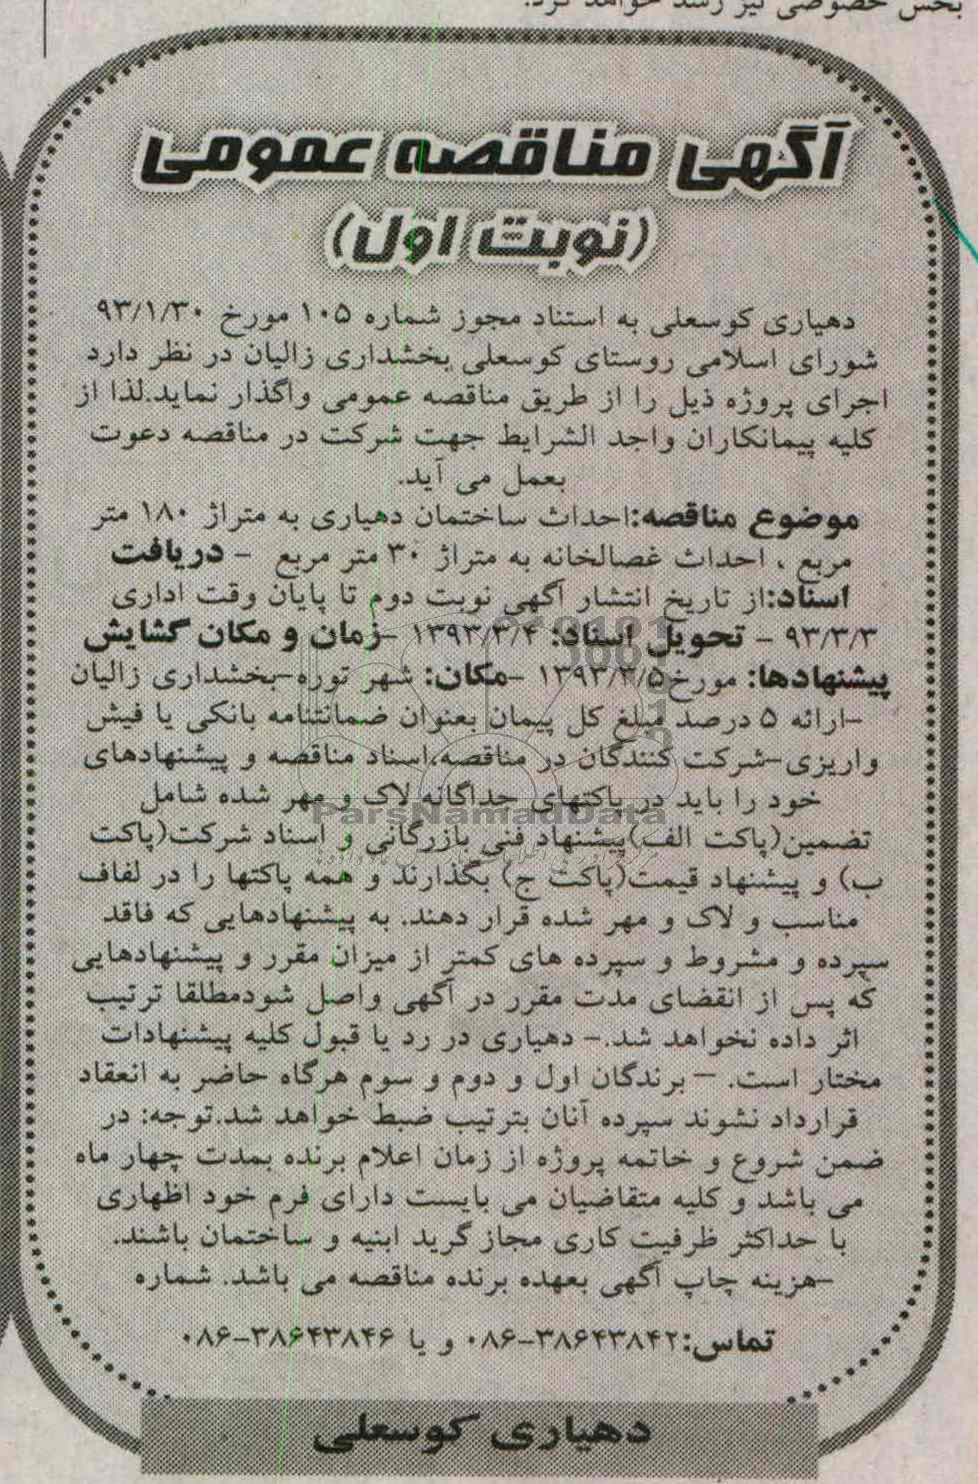 بخش خصوصی نیز رشد خواهد کرد.
آگهی مناقصه عمومی
(نوبت اول)
دهیاری کوسعلی به استناد مجوز شماره ۱۰۵ مورخ ۹۳/۱/۳۰
شورای اسلامی روستای کوسعلی بخشداری زالیان در نظر دارد
اجرای پروژه ذیل را از طریق مناقصه عمومی واگذار نماید.لذا از
کلیه پیمانکاران واجد الشرایط جهت شرکت در مناقصه دعوت
بعمل می آید.
موضوع مناقصه:احداث ساختمان دهیاری به متراژ ۱۸۰ متر
مربع ، احداث غصالخانه به متراژ ۳۰ متر مربع - دریافت
اسناد:از تاریخ انتشار آگهی نوبت دوم تا پایان وقت اداری
۹۳/۳/۳ - تحویل اسناد: ۱۳۹۳/۳/۴ -زمان و مکان گشایش
پیشنهادها: مورخ۱۳۹۳/۳/۵ -مکان: شهر توره-بخشداری زالیان
-ارائه ۵ درصد مبلغ کل پیمان بعنوان ضمانتنامه بانکی یا فیش
واریزی-شرکت کنندگان در مناقصه،اسناد مناقصه و پیشنهادهای
خود را باید در پاکتهای جداگانه لاک و مهر شده شامل
ParsNamadData
تضمین(پاکت الف)پیشنهاد فنی بازرگانی و اسناد شرکت(پاکت
ب) و پیشنهاد قیمت(پاکت ج) بگذارند و همه پاکتها را در لفاف
مناسب و لاک و مهر شده قرار دهند. به پیشنهادهایی که فاقد
سپرده و مشروط و سپرده های کمتر از میزان مقرر و پیشنهادهایی
که پس از انقضای مدت مقرر در آگهی واصل شودمطلقا ترتیب
اثر داده نخواهد شد.- دهیاری در رد یا قبول کلیه پیشنهادات
مختار است. - برندگان اول و دوم و سوم هرگاه حاضر به انعقاد
قرارداد نشوند سپرده آنان بترتیب ضبط خواهد شد.توجه: در
ضمن شروع و خاتمه پروژه از زمان اعلام برنده بمدت چهار ماه
می باشد و کلیه متقاضیان می بایست دارای فرم خود اظهاری
با حداکثر ظرفیت کاری مجاز گرید ابنیه و ساختمان باشند.
-هزینه چاپ آگهی بعهده برنده مناقصه می باشد. شماره
تماس:۳۸۶۴۳۸۴۲-۰۸۶ و یا ۳۸۶۴۳۸۴۶-۰۸۶
دهیاری کوسعلی